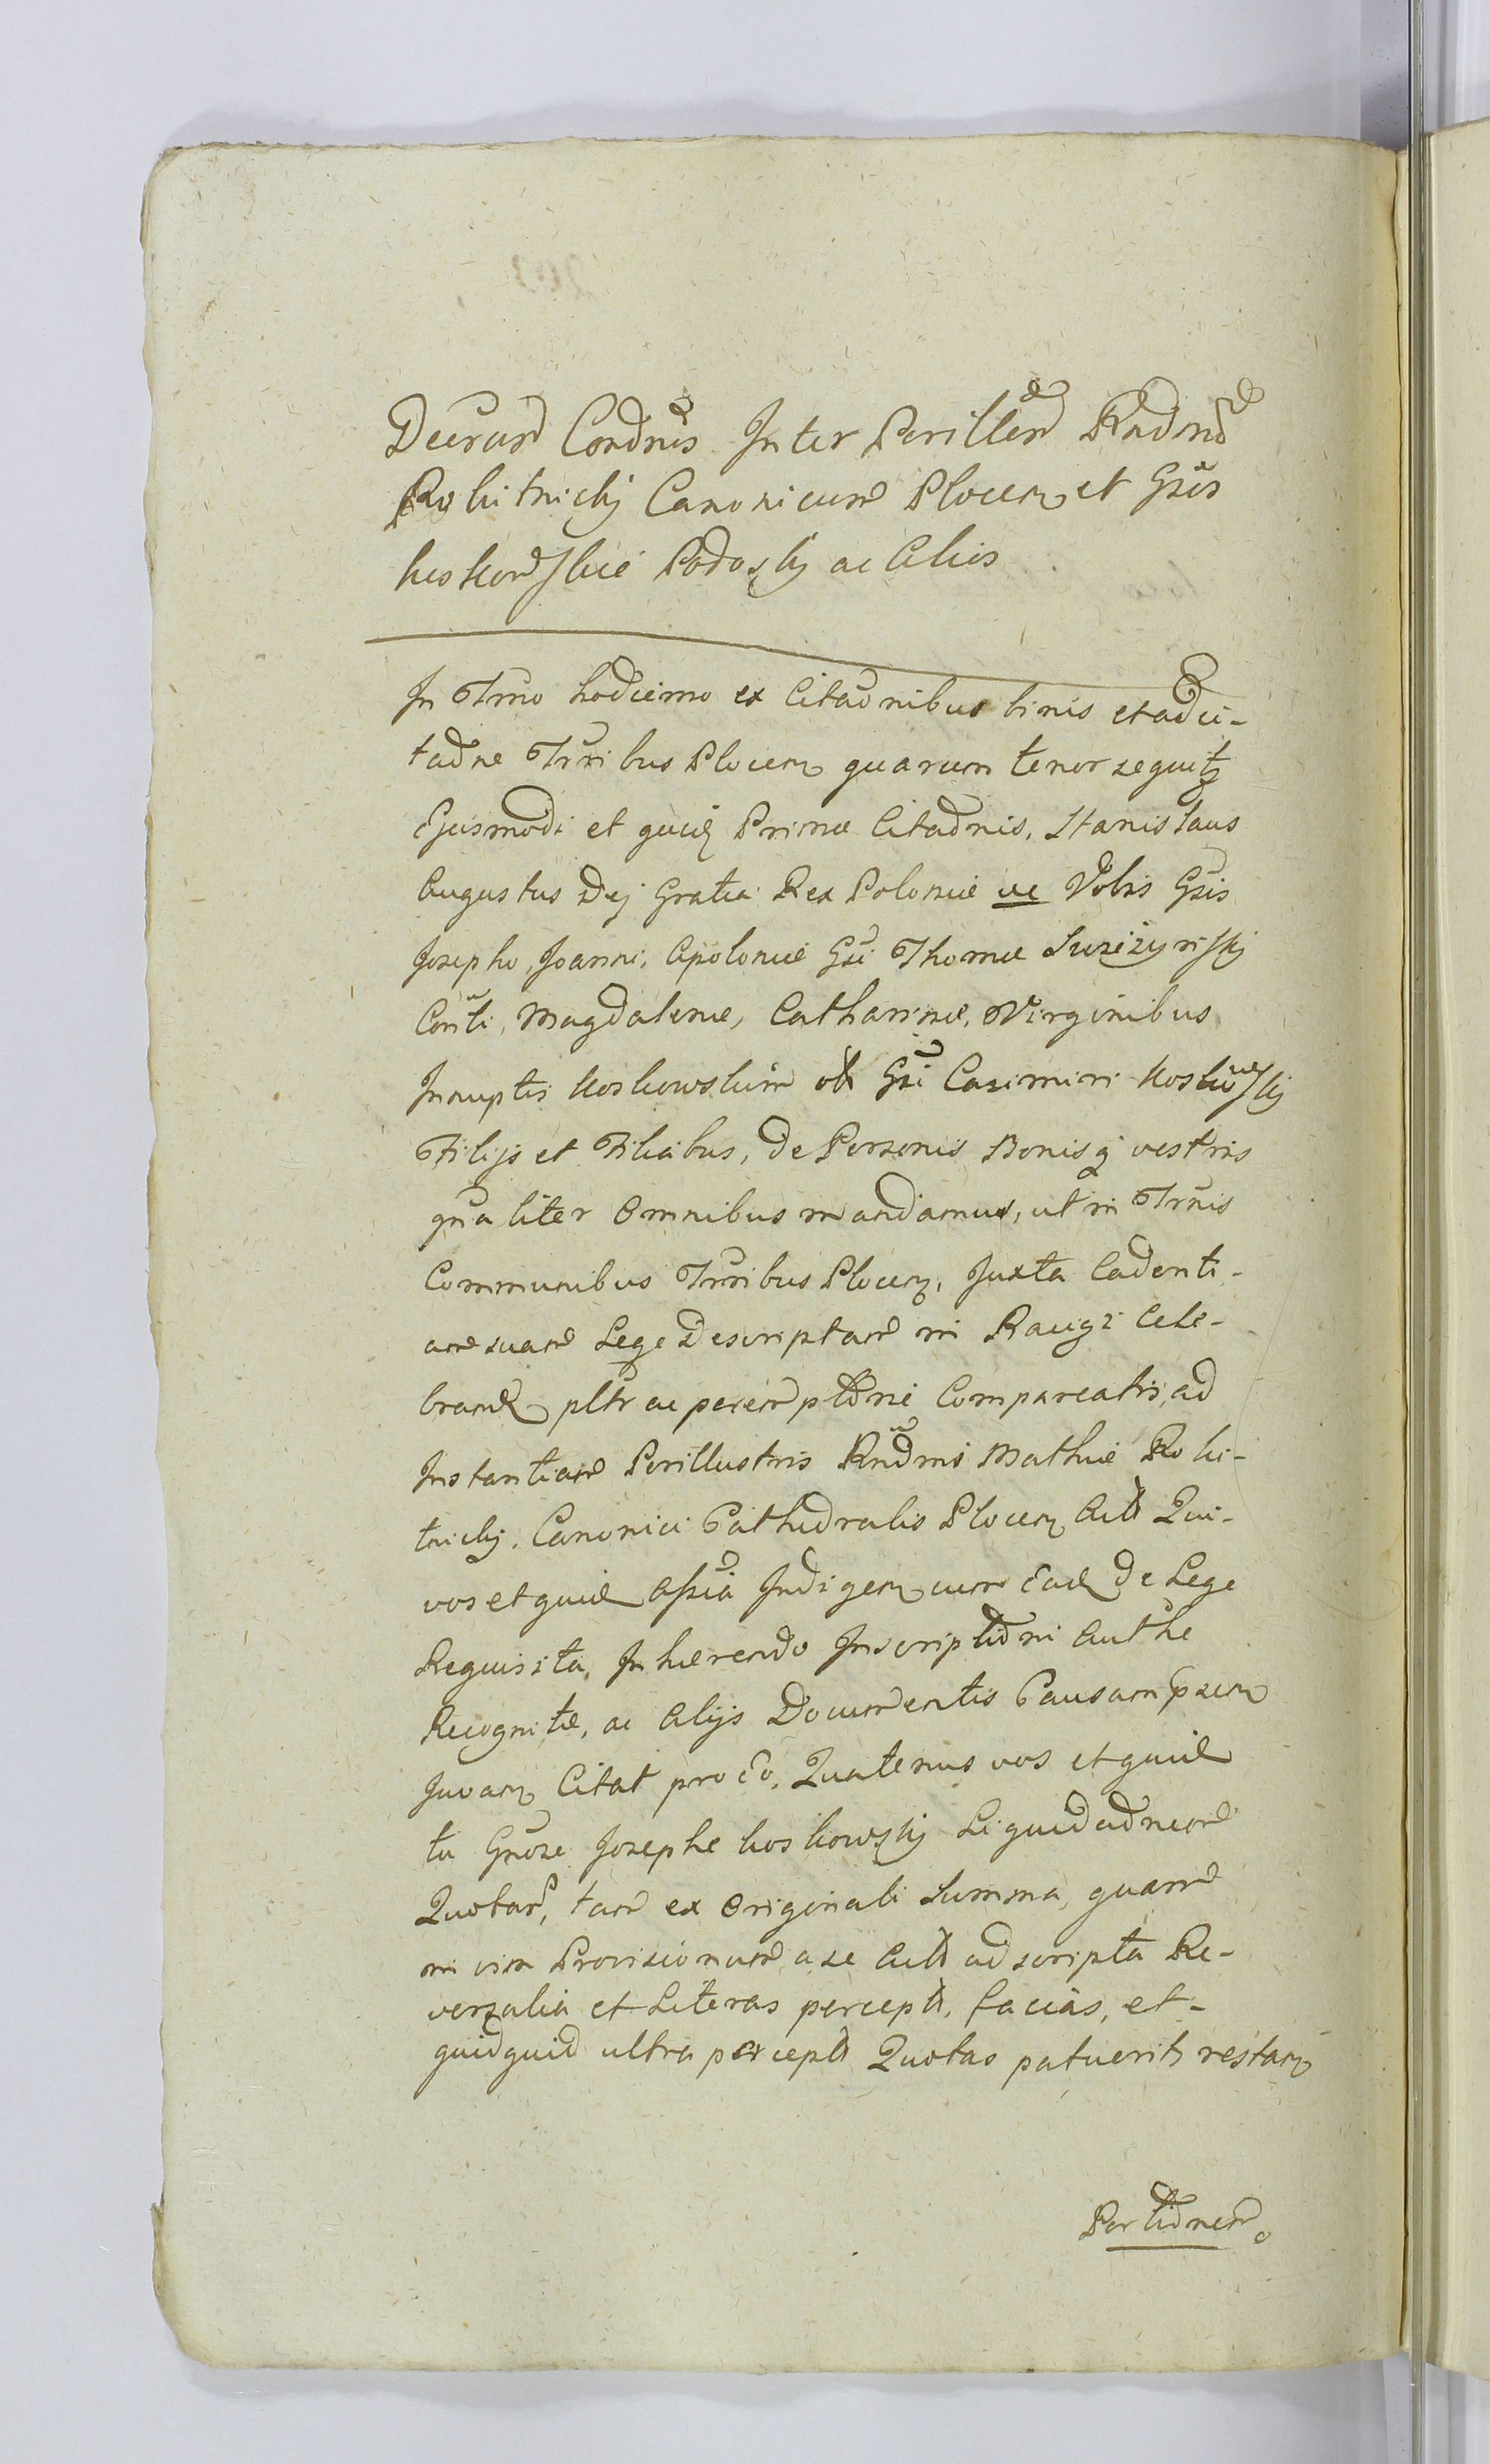 Decrum Condnis Inter Perillem Rndmm
Rokitnickj Canonicum Plocen et Gsos
Koskowskie Podoskj ac Alios
In Trno hodierno ex Citaonibus binis et adci-
taone Trribus Plocen quarum tenor sequitr
Ejusmodi et quid Primæ Citaonis. Stanislaus
Augustus Dej Gratia Rex Poloniæ ac Vobis Gsis
Josepho, Joanni, Apoloniæ Gsi Thomæ
Conti, Magdalenæ, Catharinæ, Virginibus
Innuptis Koskowskim olt Gsi Casimiri Koskowskj
Filijs et Filiabus, de Personis Bonisq vestris
gnaliter Omnibus mandamus, ut in Trnis
Communibus Trribus Plocen, Juxta Cadenti-
am suam Lege Descriptam in Raugz Cele-
brand pltr ac peremptorie Compareatis, ad
Instantiam Perillustris Rndmi Mathiæ Roki-
tnickj, Canonici Cathedralis Plocen Actt Qui-
vos et quid Assia Indigen cum Ead de Lege
Requisita, Inhærendo Inscriptioni Authe
Recognitæ, ac Alijs Documentis Causam Ipsem
Juvan Citat pro Eo, Quatenus vos et quid
tu Gnose Josephe Koskowskj Liquidaonem
Quotar, tam ex Originali Summa, quam
in vim Provisionum a se Actt ad scripta Re-
versalia et Literas percept, facias, et-
quidquid ultra percept Quotas patuerit, restan
Portionem